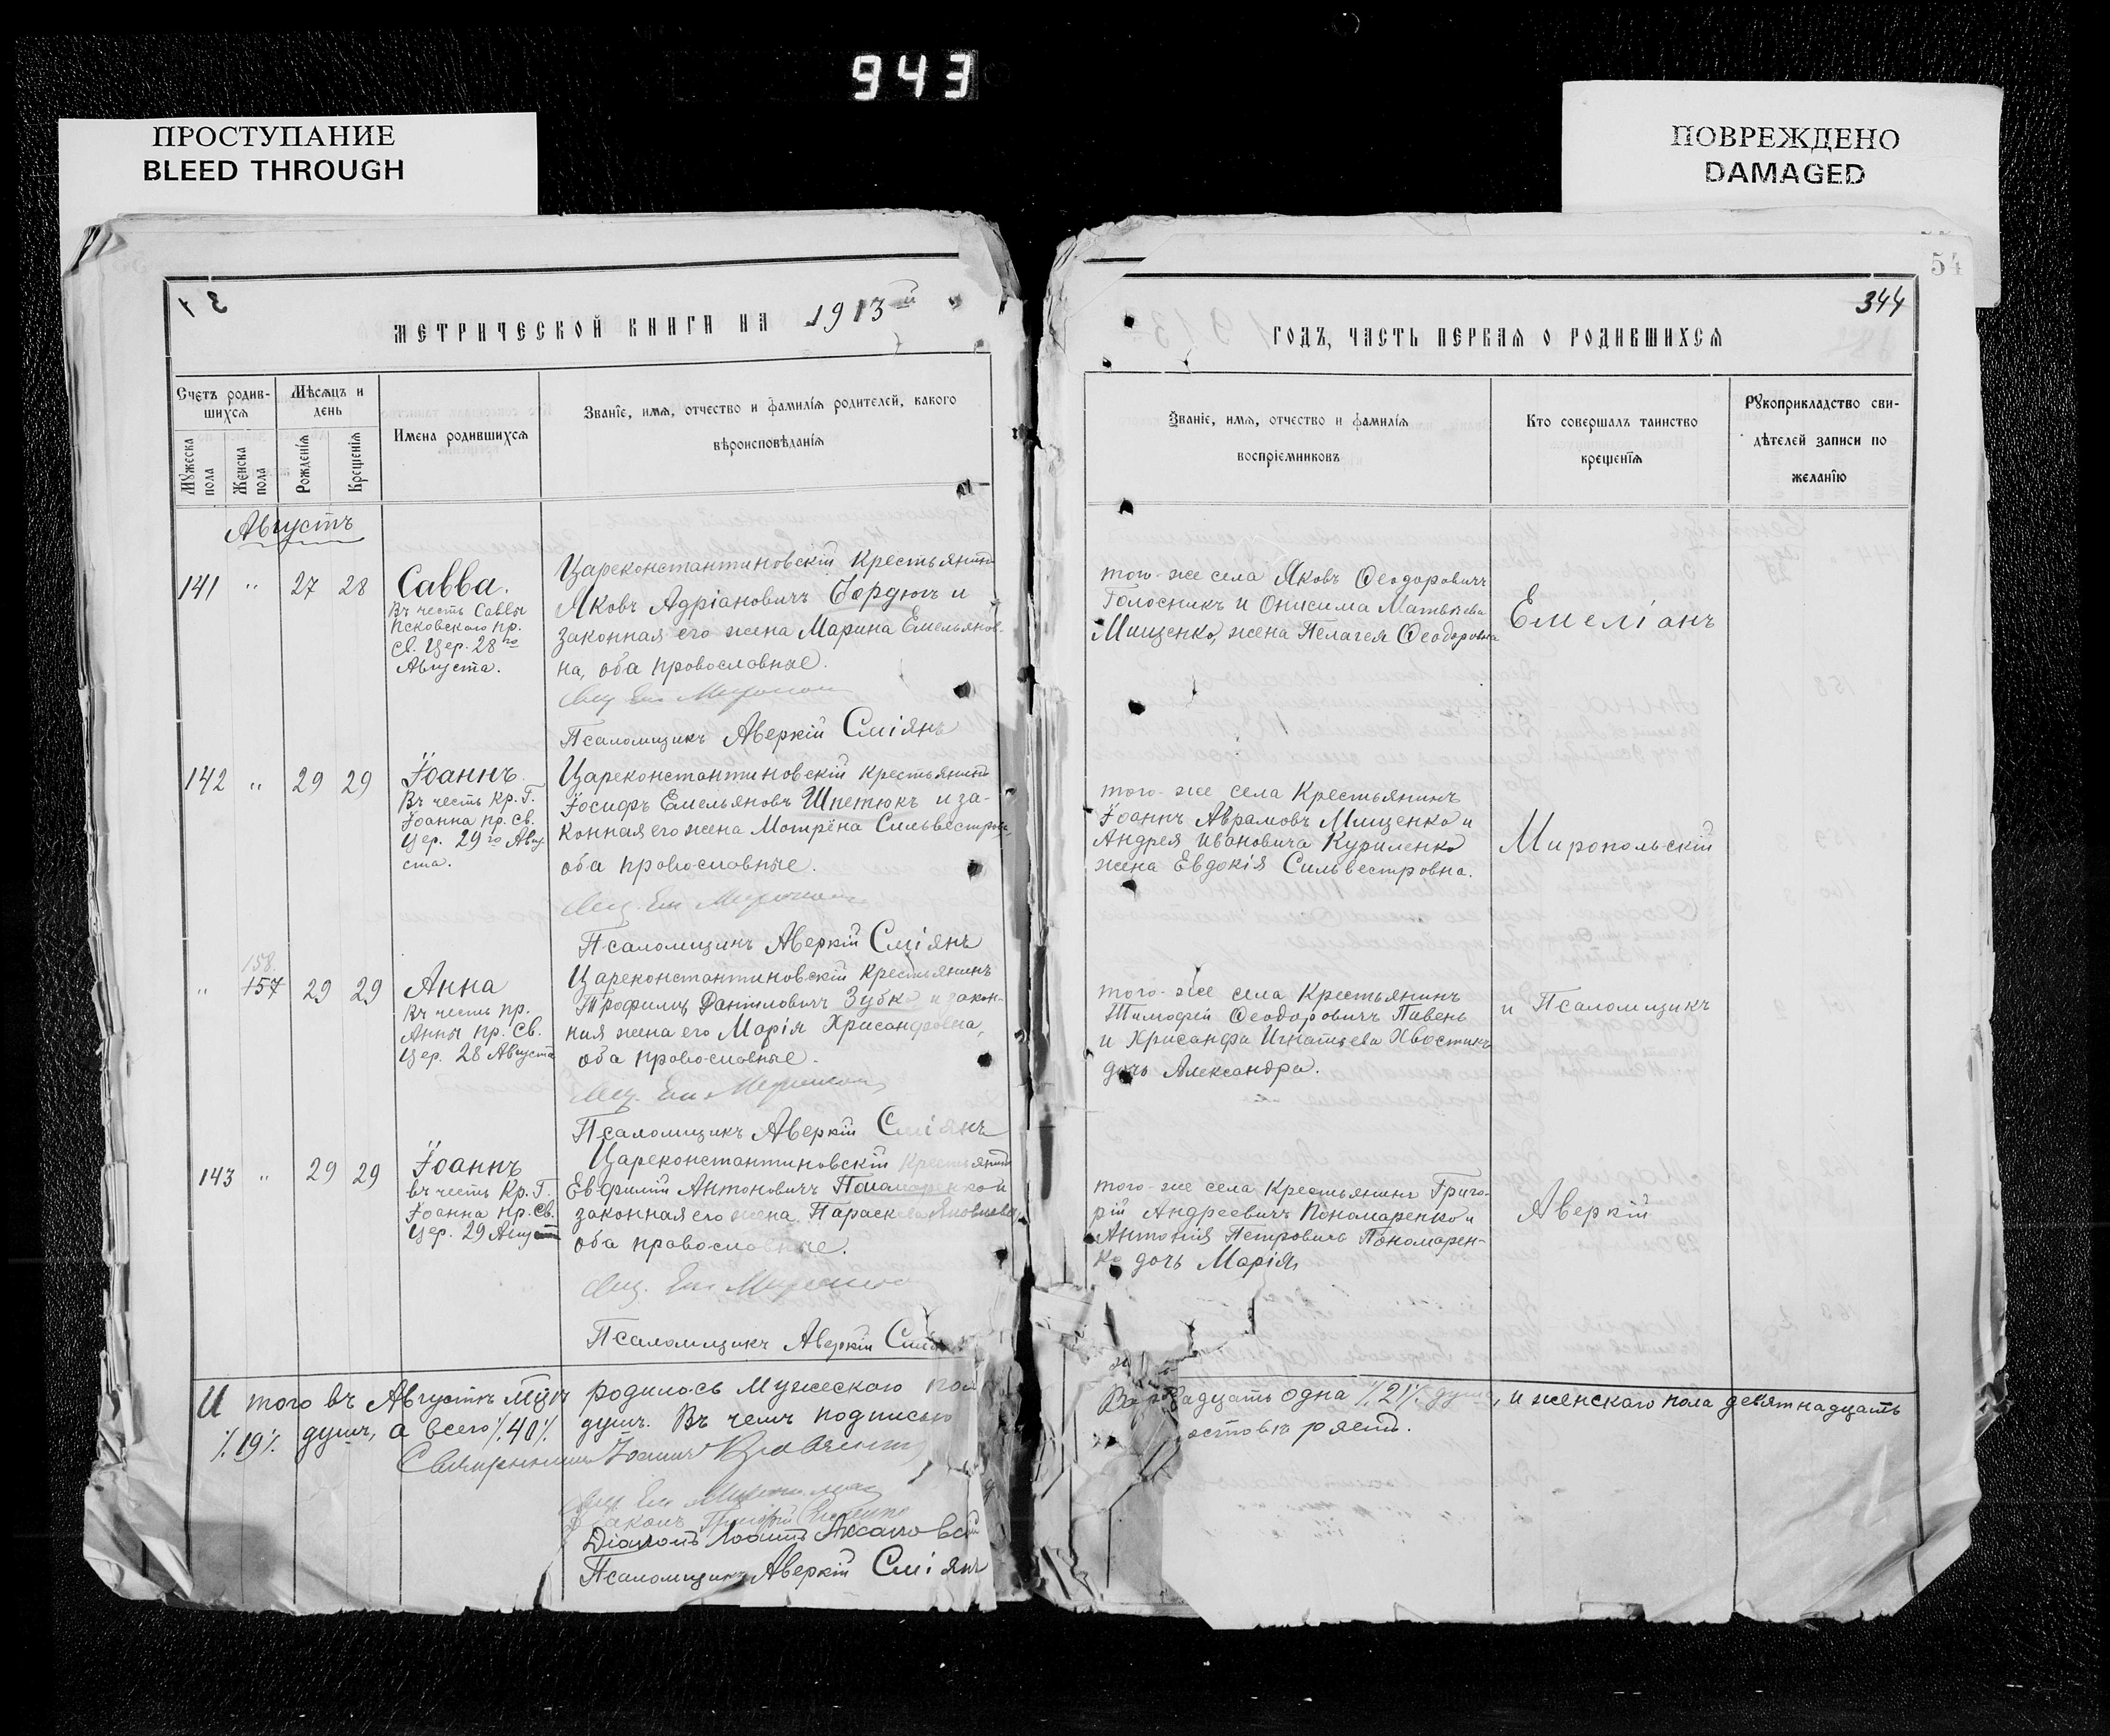 943
ПРОСТУПАНИЕ
BLEED THROUGH
ПОВРЕЖДЕНО
DAMAGED
54
344
МЕТРИЧЕСКОЙ КНИГИ НА 1913й
ГОДЪ, ЧАСТЬ ПЕРВАЯ О РОДИВШИХСЯ
Счетъ родив-
шихся
Мѣсяцъ и
день
Мужеска
пола
Женска
пола
Рожденїя
Крещенїя
Имена родившихся
Званїе, имя, отчество и фамилїя родителей, какого
вѣроисповѣданїя
Званїе, имя, отчество и фамилїя
воспрїемниковъ
Кто совершалъ таинство
крещенїя
Рукоприкладство сви-
дѣтелей записи по
желанїю
Августъ
141 " 27 28
Савва.
Въ честь Саввы
Псковскаго пр.
св. Цер. 28го
Августа.
Цареконстантиновскій Крестьянинъ
Яковъ Адріановичъ Бордюгъ и
законная его жена Марина Емельянов-
на, оба православные.
Псаломщикъ Аверкій Сміянъ
того-же села Яковъ Ѳеодоровичъ
Голосникъ и Онисима Матвѣева
Мищенко, жена Пелагея Ѳеодоровна
Емеліанъ
142 " 29 29
Іоаннъ.
Въ честь Кр. Г.
Іоанна пр. св.
Цер. 29го Авгу-
ста.
Цареконстантиновскій Крестьянинъ
Іосифъ Емельяновъ Шпетюкъ и за-
конная его жена Мотрёна Сильвестров.
оба православные.
Псаломщикъ Аверкій Сміянъ
того-же села Крестьянинъ
Іоаннъ Аврамовъ Мищенко и
Андрея Ивановича Куриленко
жена Евдокія Сильвестровна.
Миропольскій
" 158. 157 29 29
Анна
Въ честь пр.
Анны пр. св.
Цер. 28 Августа
Цареконстантиновскій Крестьянинъ
Трофимъ Даниловичъ Зубко и закон-
ная жена его Марія Хрисанфовна,
оба православные.
Псаломщикъ Аверкій Сміянъ
того-же села Крестьянинъ
Тимофей Ѳеодоровичъ Пивень
и Хрисанфа Игнатьева Хвостикъ
дочь Александра.
и Псаломщикъ
143 " 29 29
Іоаннъ
въ честь Кр. Г.
Іоанна пр. св.
Цер. 29 Авгус
Цареконстантиновскій Крестьянинъ
Евфимій Антоновичъ Пономаренко и
законная его жена Параскева Яковлева
оба православные.
Псаломщикъ Аверкій Смі
того-же села Крестьянинъ Григо-
рій Андреевичъ Пономаренко и
Антонія Петровичъ Пономарен-
ко дочь Марія
Аверкій
И того въ Августѣ м-цѣ родилось Мужескаго пол
двадцать одна /.21/. душа, и женскаго пола девятнадцать
/.19/. душъ, а всего /.40/. душъ. Въ чемъ подписью
Священникъ Іоаннъ
Діаконъ Григорій
Діаконъ Іоаннъ
Псаломщикъ Аверкій Сміянъ